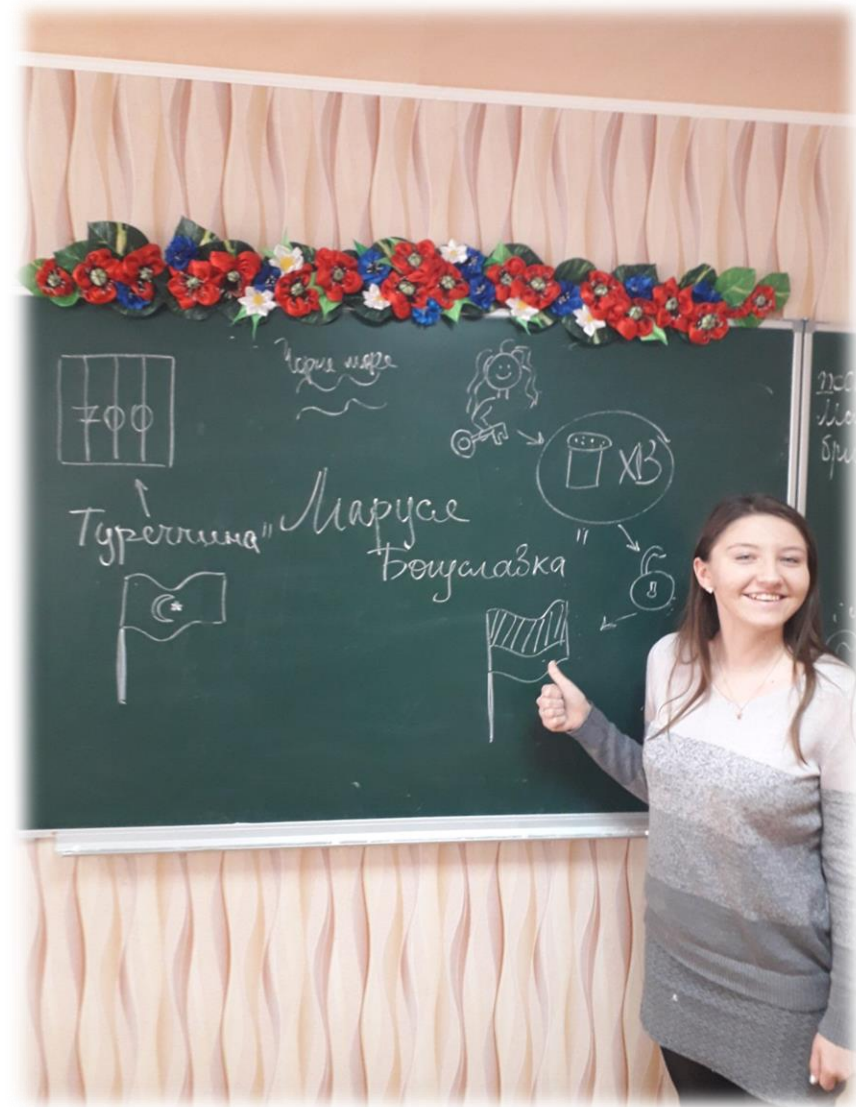 Чорне море
700
ХВ
Туреччина
"Маруся
Богуславка"